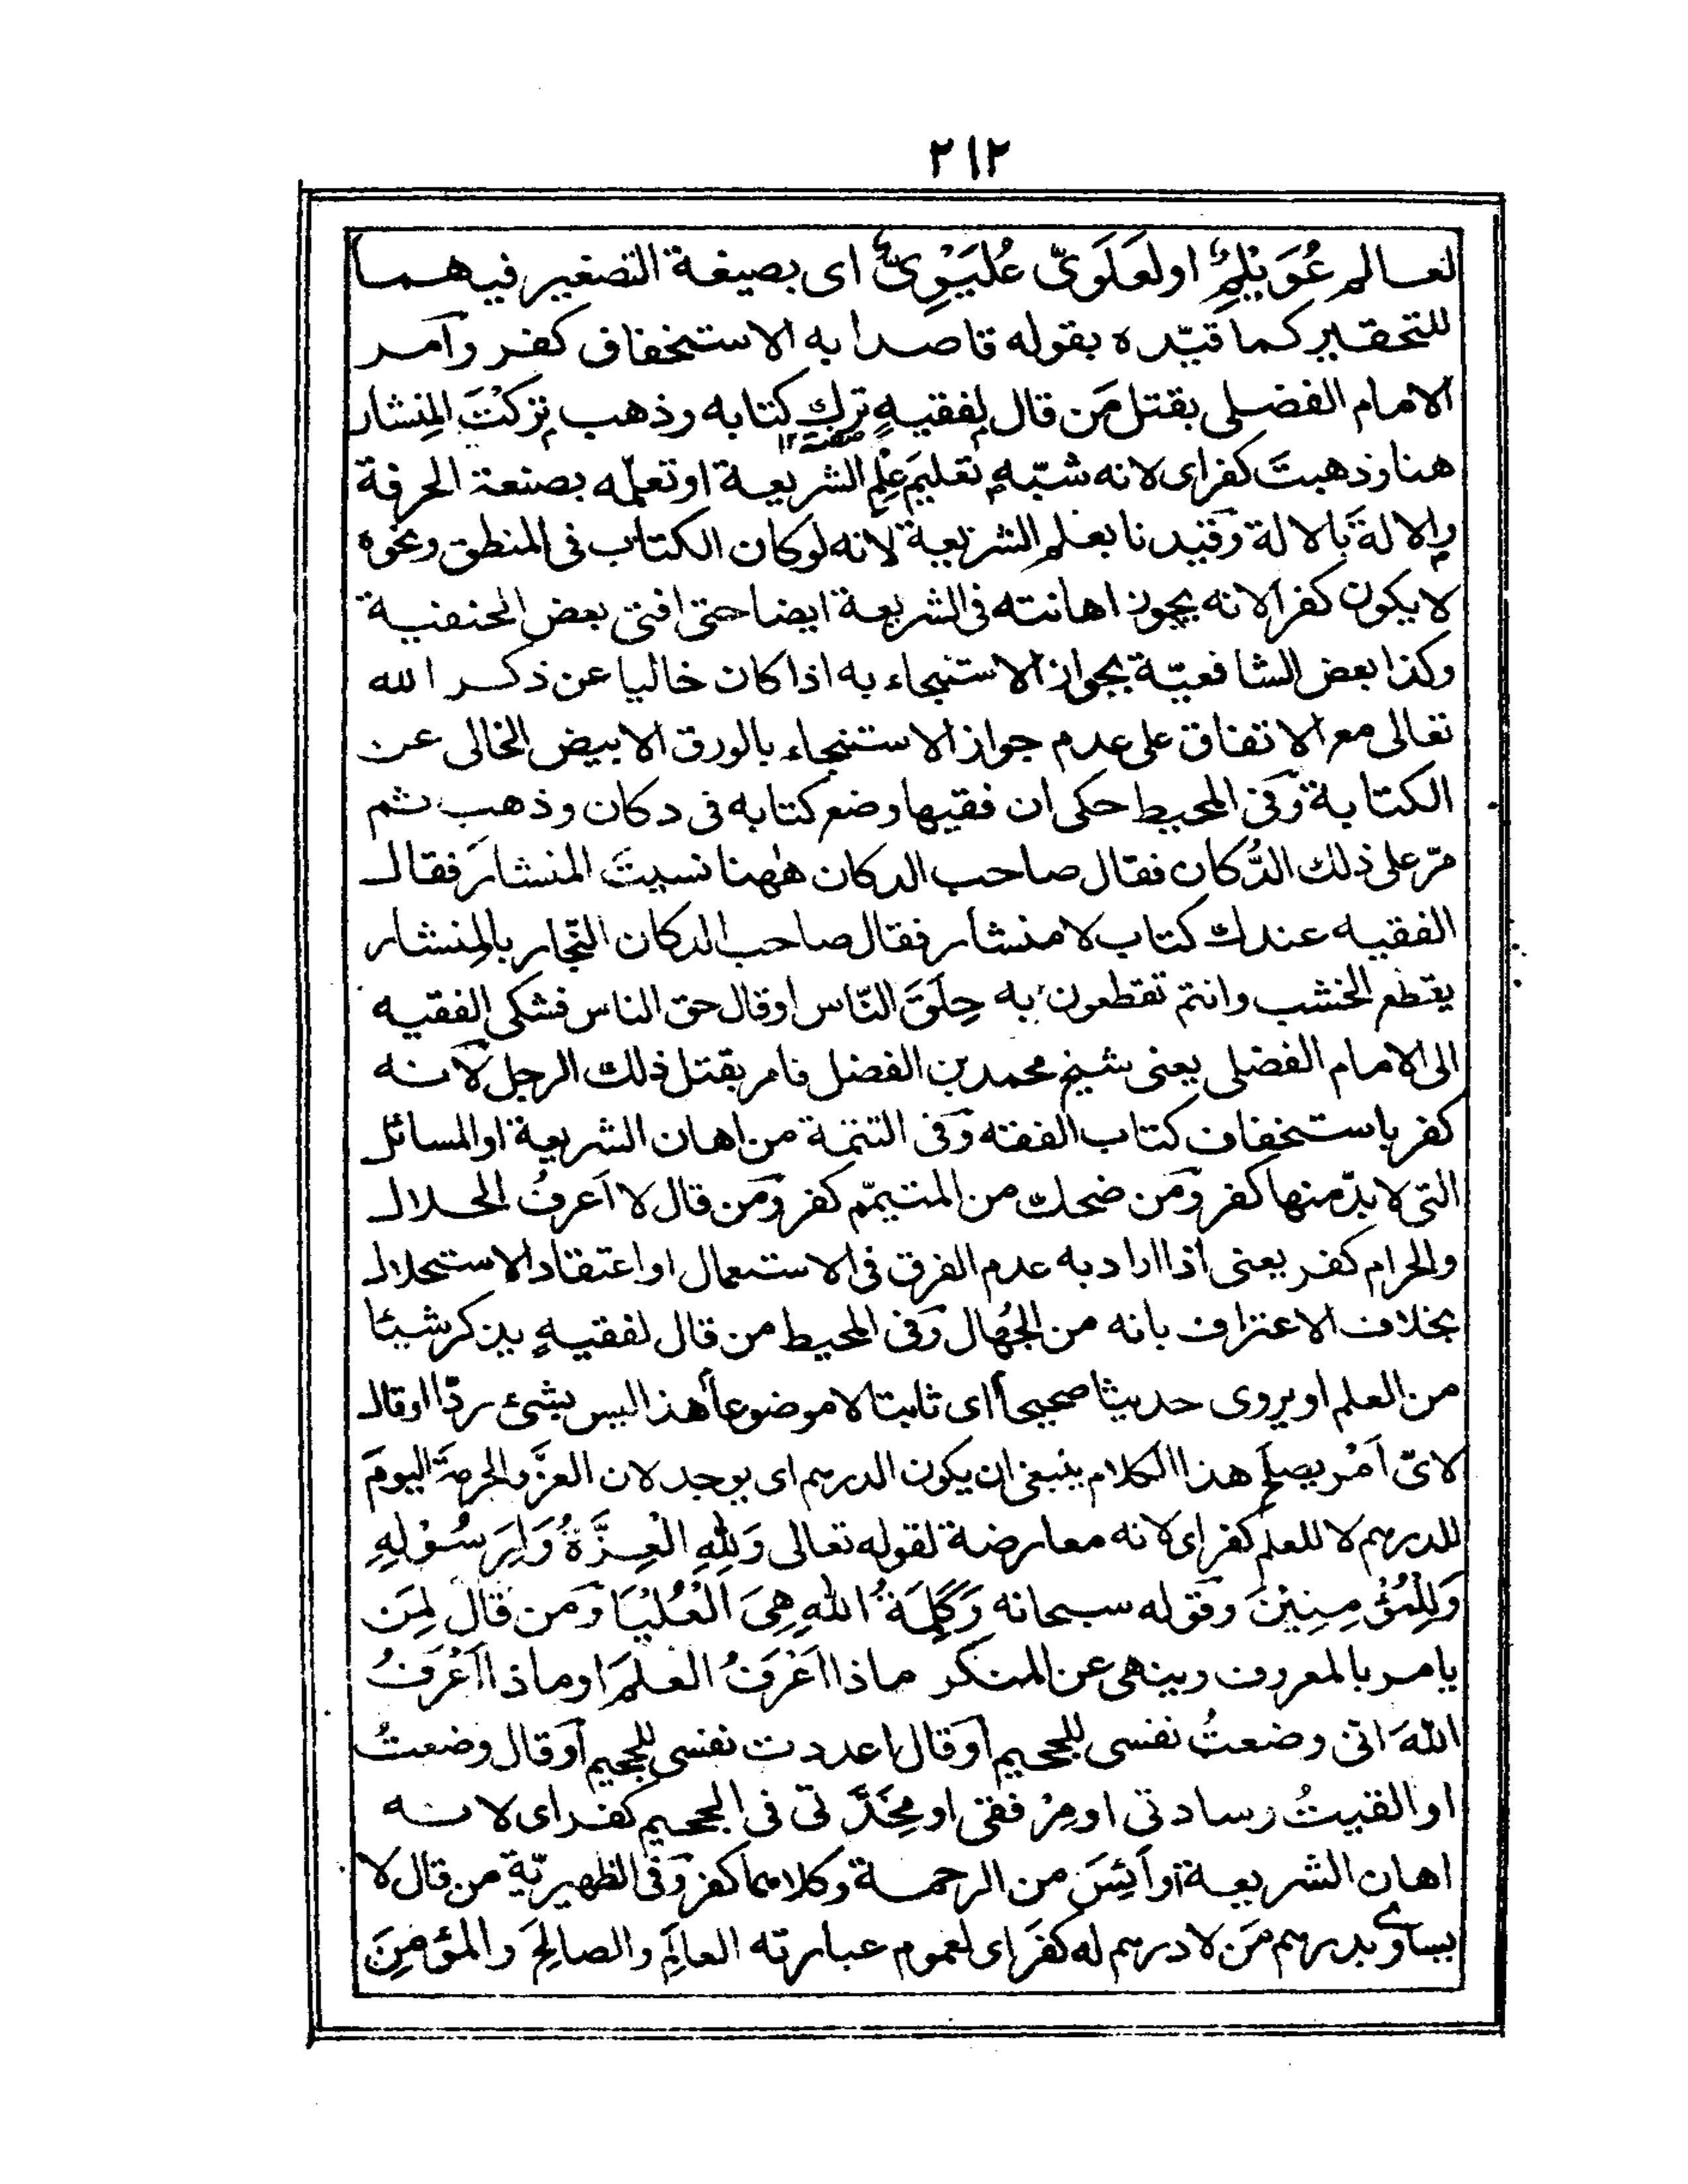 ٢١٢
لعالم عُوَيْلِمٌ او لعَلَوىّ عُلَيْوِىٌّ اى بصيغة التصغير فيهما
للتحقير كما قيّده بقوله قاصدا به الاستخفاف كفر وآمر
الامام الفضلى بقتل مَن قال لفقيهٍ ترك كتابه وذهب تركتَ المِنشار
هنا وذهبتَ كفر اى لانه شبّه تعليمَ عِلمِ الشريعة او تعلّمه بصنعة الحرفة
والالةَ بالالة وقيدنا بعلم الشريعة لانه لوكان الكتاب فى المنطق ونحوه
لا يكون كفرا لانه يجوز اهانته فى الشريعة ايضا حتى افتى بعض الحنفية
وكذا بعض الشافعيّة بجواز الاستنجاء به اذا كان خاليا عن ذكر الله
تعالى مع الاتفاق على عدم جواز الاستنجاء بالورق الابيض الخالى عن
الكتابة وَفى المحيط حكى ان فقيها وضع كتابه فى دكان وذهب ثم
مرّ على ذلك الدُّكان فقال صاحب الدكان هٰهنا نسيتَ المنشارَ فقال
الفقيه عندك كتاب لا منشار فقال صاحب الدكان النّجار بالمِنشار
يقطع الخشب وانتم تقطعون به حِلَقَ النّاس اوقال حق الناس فشكى الفقيه
الى الامام الفضلى يعنى شيخ محمد بن الفضل فامر بقتل ذلك الرجل لانه
كفر باستخفاف كتاب الفقه وَفى التتمة من اهان الشريعة او المسائل
التى لا بدّ منها كفر وَمن ضحك من المتيمّم كفر وَمن قال لا اَعرفُ الحلال
والحرام كفر يعنى اذا اراد به عدم الفرق فى الاستعمال او اعتقاد الاستحلال
بخلاف الاعتراف بانه من الجُهال وَفى المحيط من قال لفقيهٍ يذكر شيئا
من العلم او يروى حديثا صحيحاً اى ثابتا لا موضوعاً هذا ليس بشئ ردّا اوقال
لاىّ اَمْر يصلح هذا الكلام ينبغى ان يكون الدرهم اى يوجد لان العزّ والحرمة اليومَ
للدرهم لا للعلم كفر اى لانه معارضة لقوله تعالى وَلِلّٰهِ الْعِزَّةُ وَلِرَسُوْلِهٖ
وَلِلْمُؤْمِنِيْنَ وقوله سبحانه وَكَلِمَةُ اللهِ هِىَ الْعُلْيَا وَمن قال لِمَن
يامر بالمعروف وينهى عن المنكر ماذا اَعْرَفُ العلمَ اوماذا اَعْرَفُ
اللهَ انى وضعتُ نفسى للجحيم اَوقال اعددت نفسى للجحيم اَوقال وضعتُ
او القيتُ وسادتى او مِرْفقى او مِخَدَّتى فى الجحيم كفر اى لانه
اهان الشريعة اَو اَئِسَ من الرحمة وكلاهما كفر وَفى الظهيريّة من قال لا
يساوى بدرهم مَن لا درهم له كفرَ اى لعموم عبارته العالِمَ والصالحَ والمؤمِنَ